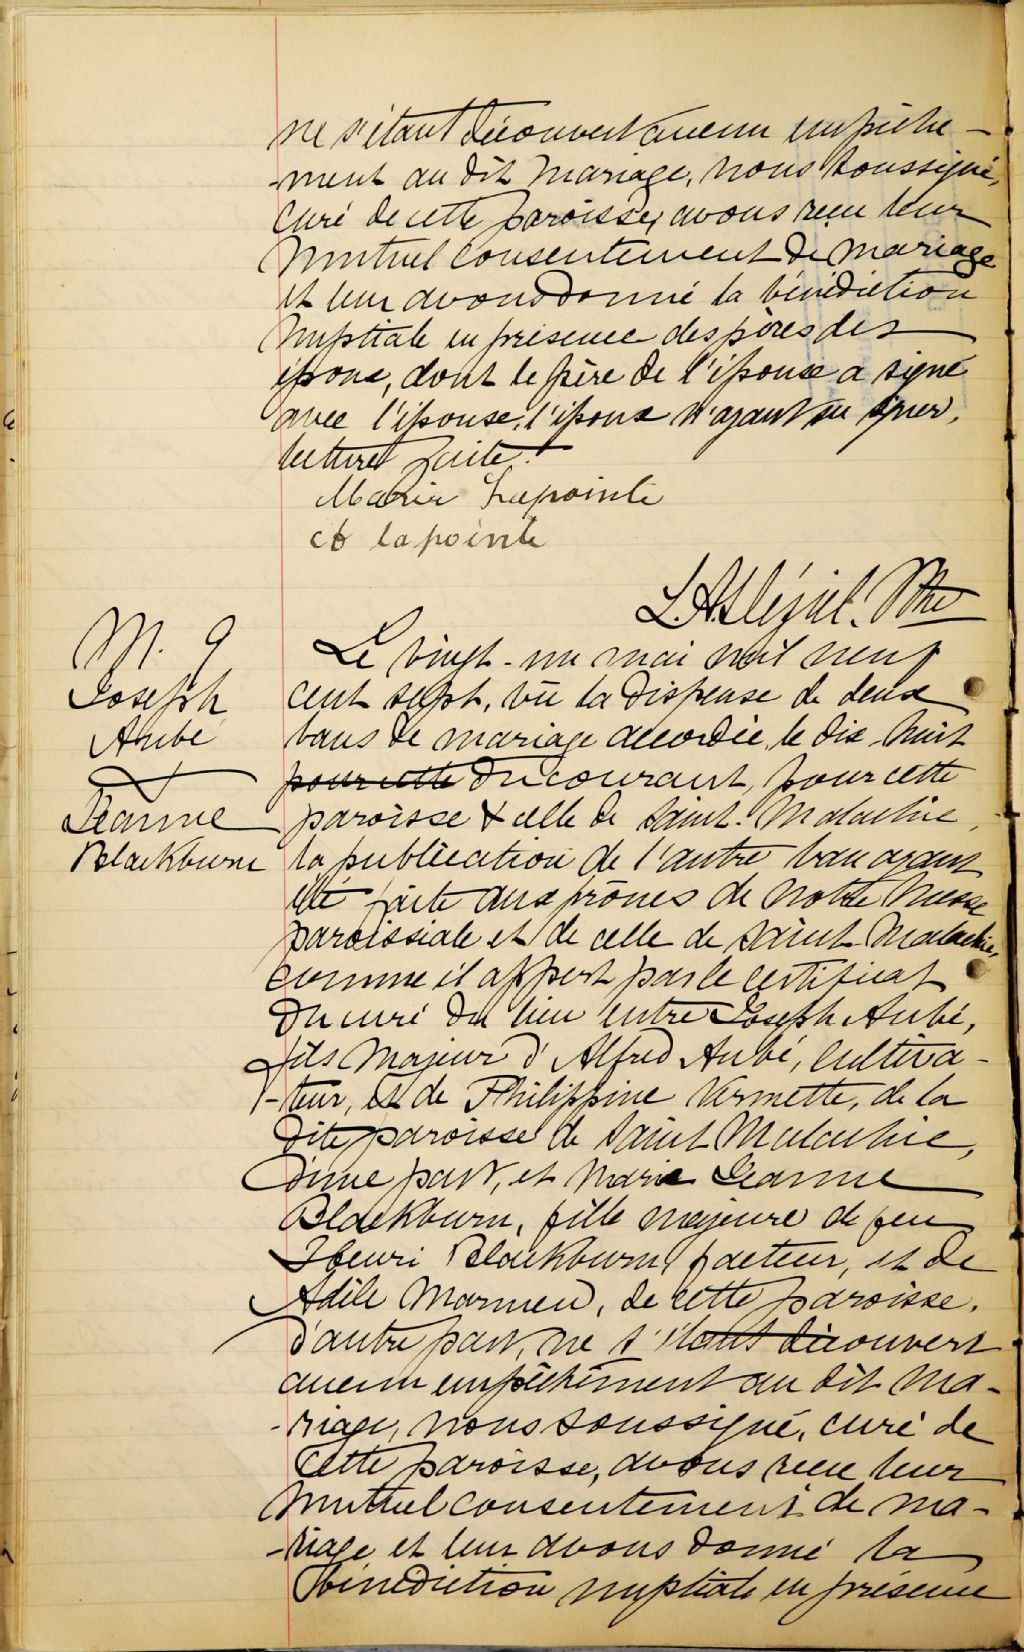 ne s'étant découvert aucun empêche-
-ment au dit mariage, nous soussigné,
curé de cette paroisse, avons reçu leur
mutuel consentement de mariage
et leur avons donné la bénédiction
nuptiale en présence des pères des
époux, dont le père de l'épouse a signé
avec l'épouse, l'époux n'ayant su signer,
lecture faite.
Marie Lapointe
lapointe
Ptre
M. 9
Joseph
Aubé
&
Jeanne
Blackburn
Le vingt-un mai mil neuf
cent sept, vû la dispense de deux
bans de mariage accordée le dix huit
pour cette du courant, pour cette
paroisse & celle de Saint-Malachie,
la publication de l'autre ban ayant
été faite aux prônes de notre messe
paroissiale et de celle de Saint Malachie,
comme il appert par le certificat
du curé du lieu entre Joseph Aubé,
fils majeur d'Alfred Aubé, cultiva-
-teur, et de Philippine Vermette, de la
dite paroisse de Saint Malachie,
d'une part, et Marie Jeanne
Blackburn, fille majeure de feu
Henri Blackburn, facteur, et de
Adèle Marmen, de cette paroisse,
d'autre part, ne s'étant découvert
aucun empêchement au dit ma-
-riage, nous soussigné, curé de
cette paroisse, avons reçu leur
mutuel consentement de ma-
-riage et leur avons donné la
bénédiction nuptiale en présence